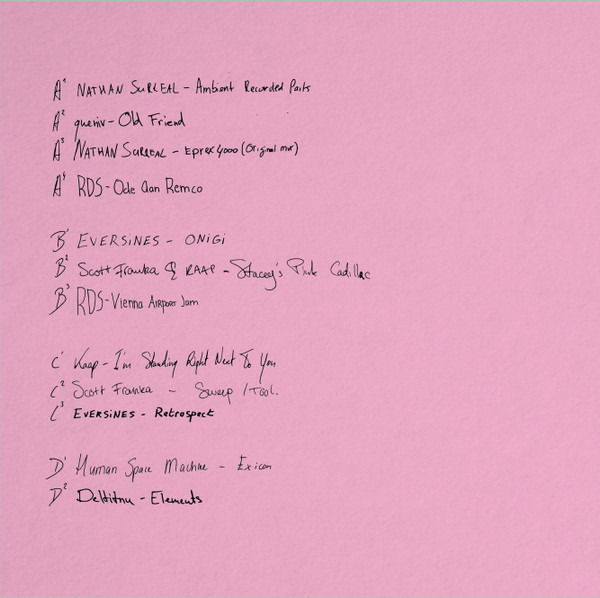 A1 NATHAN SURREAL - Ambient Recorded Parts
A2 queniv - Old Friend
A3 NATHAN SURREAL - Eprex 4000 (Original mix)
A4 RDS - Ode Aan Remco
B1 EVERSINES - ONIGI
B2 Scott Franka & RAAP - Stacey's Pink Cadillac
B3 RDS - Vienna Airport Jam
C1 Kaap - I'm Standing Right Next To You
C2 Scott Franka - Sweep / Tool.
C3 EVERSINES - Retrospect
D1 Human Space Machine - Exicon
D2 - Elements